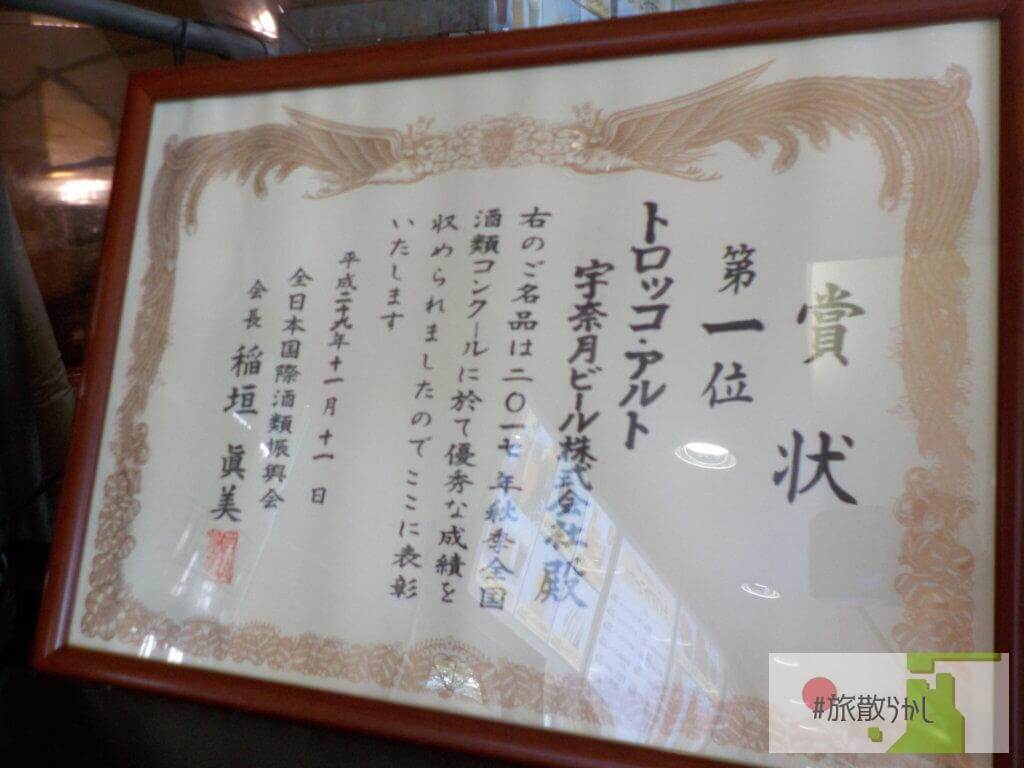 賞状
第一位
トロッコ・アルト
宇奈月ビール株式会社殿
右のご名品は二〇一七年秋季全国
酒類コンクールに於て優秀な成績を
収められましたのでここに表彰
いたします
平成二十九年十一月十一日
全日本国際酒類振興会
会長 稲垣眞美
#旅散らかし